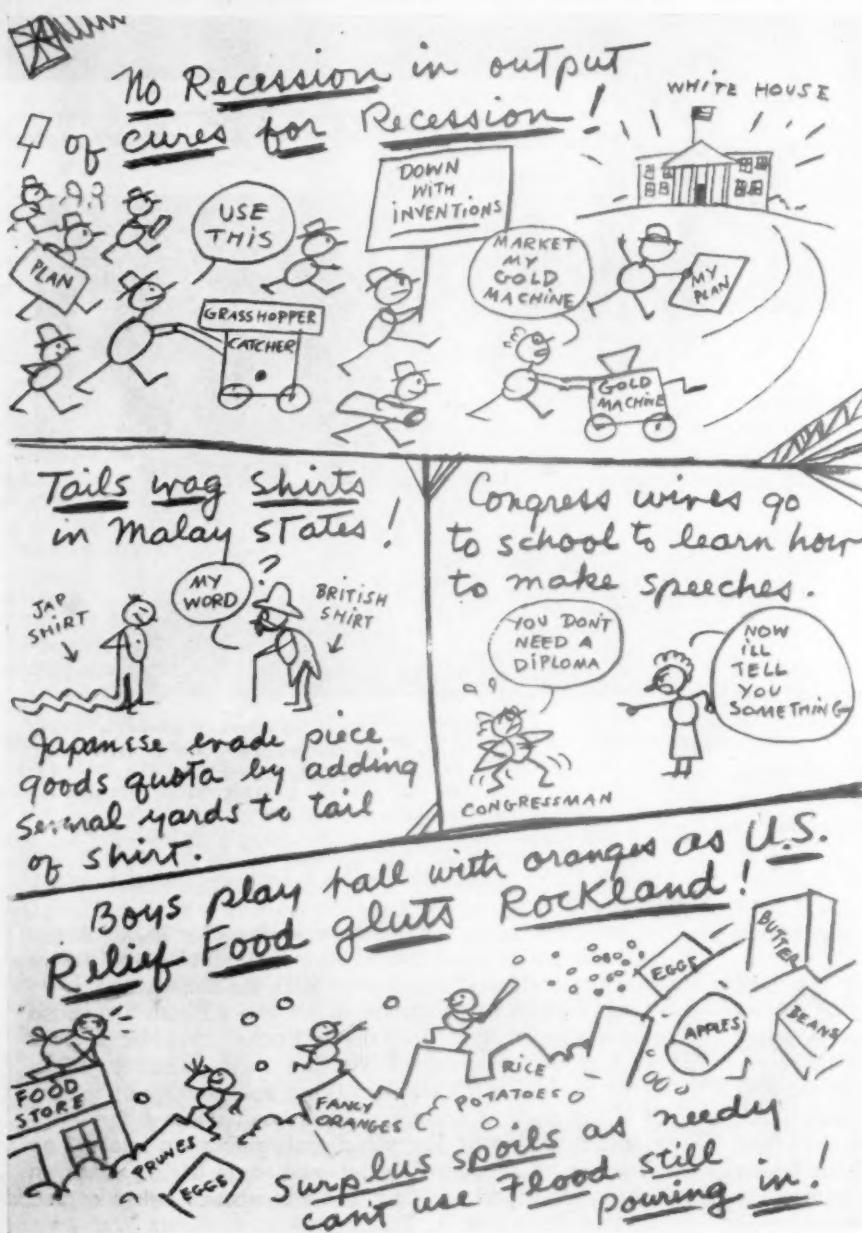 No Recession in output
of cures for Recession!
WHITE HOUSE
PLAN
USE
THIS
GRASSHOPPER
CATCHER
DOWN
WITH
INVENTIONS
MARKET
MY
GOLD
MACHINE
MY
PLAN
GOLD
MACHINE
Tails wag shirts
in Malay States!
JAP
SHIRT
MY
WORD
?
BRITISH
SHIRT
Japanese evade piece
goods quota by adding
several yards to tail
of shirt.
Congress wives go
to school to learn how
to make speeches.
YOU DON'T
NEED A
DIPLOMA
CONGRESSMAN
NOW
ILL
TELL
YOU
SOMETHING
Boys play ball with oranges as U.S.
Relief Food gluts Rockland!
FOOD
STORE
PRUNES
EGGS
FANCY
ORANGES
POTATOES
RICE
EGGS
APPLES
BUTTER
BEANS
Surplus spoils as needy
can't use Flood still
pouring in!